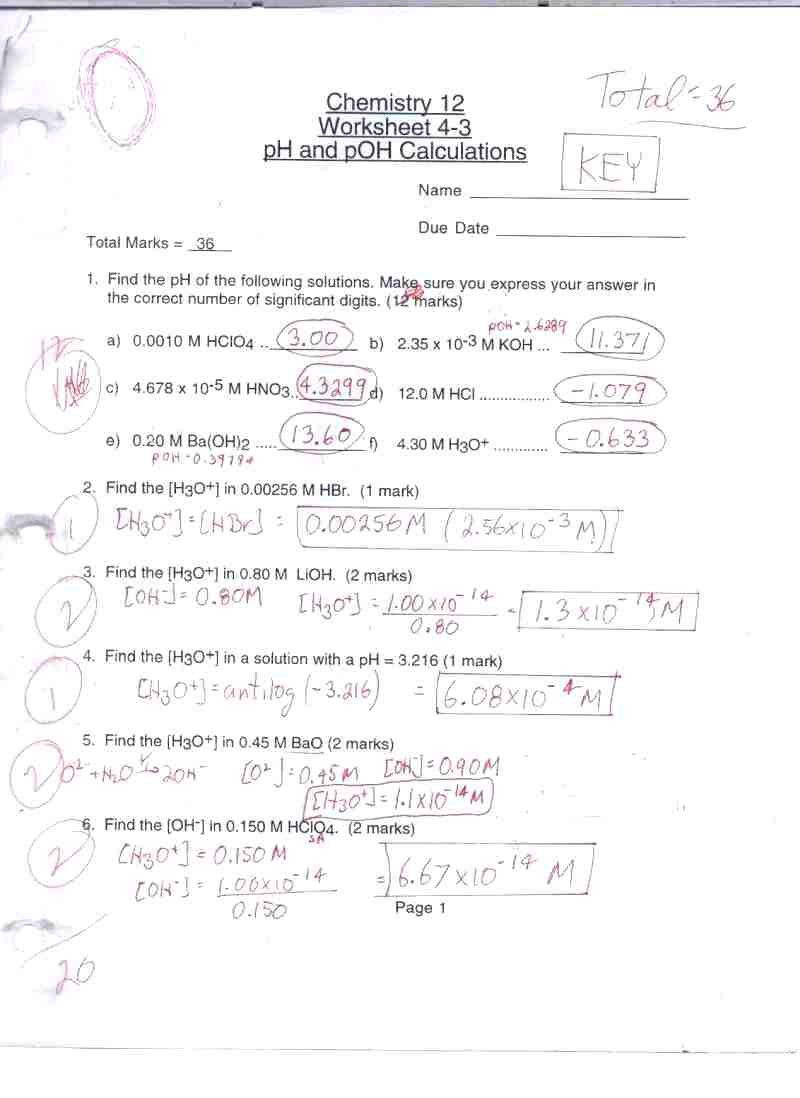 Total = 36
Chemistry 12
Worksheet 4-3
pH and pOH Calculations
KEY
Name
Due Date
Total Marks = 36
1. Find the pH of the following solutions. Make sure you express your answer in
the correct number of significant digits. (12 marks)
pOH = 2.6289
a) 0.0010 M HClO4 .. 3.00 b) 2.35 x 10-3 M KOH ... 11.371
12
c) 4.678 x 10-5 M HNO3.. 4.3299 d) 12.0 M HCl ................. -1.079
e) 0.20 M Ba(OH)2 ..... 13.60 f) 4.30 M H3O+ ............. -0.633
pOH = 0.39794
2. Find the [H3O+] in 0.00256 M HBr. (1 mark)
1 [H3O+] = [HBr] = 0.00256M (2.56x10-3 M)
3. Find the [H3O+] in 0.80 M LiOH. (2 marks)
2 [OH-] = 0.80M [H3O+] = 1.00x10-14 = 1.3x10-14 M
0.80
4. Find the [H3O+] in a solution with a pH = 3.216 (1 mark)
1 [H3O+] = antilog (-3.216) = 6.08x10-4 M
5. Find the [H3O+] in 0.45 M BaO (2 marks)
2 O2- + H2O → 2OH- [O2-] = 0.45M [OH-] = 0.90M
[H3O+] = 1.1x10-14 M
6. Find the [OH-] in 0.150 M HClO4. (2 marks)
SA
2 [H3O+] = 0.150M
[OH-] = 1.00x10-14 = 6.67x10-14 M
0.150
Page 1
20